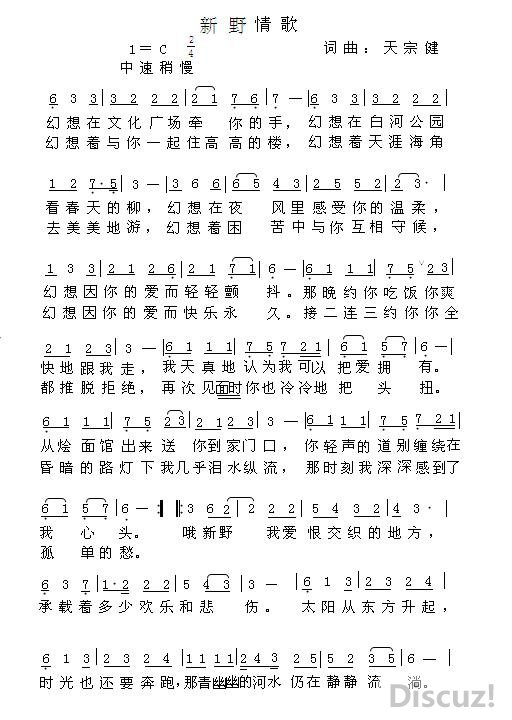 新野情歌
1=C 2/4 词曲：天宗健
中速稍慢
6 3 3 | 3 2 2 2 | 2 1 7 6 | 7 — | 6 3 3 | 3 2 2 2
幻想在文化广场牵 你的手，幻想在白河公园
幻想着与你一起住高高的楼，幻想着天涯海角
1 2 7·5 | 3 — | 3 6 6 6 | 6 5 4 3 | 2 5 5 2 | 2 3· |
看春天的柳，幻想在夜 风里感受你的温柔，
去美美地游，幻想着困 苦中与你互相守候，
1 3 3 | 2 1 2 6 | 2 2 7 1 | 6 — | 6 1 1 | 7 5 2 3
幻想因你的爱而轻轻颤 抖。那晚约你吃饭你爽
幻想因你的爱而快乐永 久。接二连三约你你全
2 1 2 3 | 3 — | 6 1 1 1 | 7 5 7 2 1 | 6 1 5 7 | 6 — |
快地跟我走，我天真地认为我可以把爱拥 有。
都推脱拒绝，再次见面时你也冷冷地把 头 扭。
6 1 1 | 7 5 2 3 | 2 1 2 3 | 3 — | 6 1 1 | 7 5 7 2 1 |
从烩面馆出来送 你到家门口，你轻声的道别缠绕在
昏暗的路灯下我几乎泪水纵流，那时刻我深深感到了
6 1 5 7 | 6 — :‖: 3 6 2 | 2 2 2 | 5 4 3 2 | 4 3· |
我 心 头。 哦新野 我爱 恨交织的地方，
孤 单的愁。
6 7 3 | 1·2 2 2 | 5 4 3 | 3 — | 3 1 3 | 2 4 2 3 |
承载着多少欢乐和悲 伤。 太阳从东方升起，
6 1 3 | 2 1 2 1 | 1 1 1 1 | 2 4 4 | 2 5 5 2 | 3 5 |
时光也还要奔跑，那青幽幽的河水 仍在静静流 淌。
Discuz!